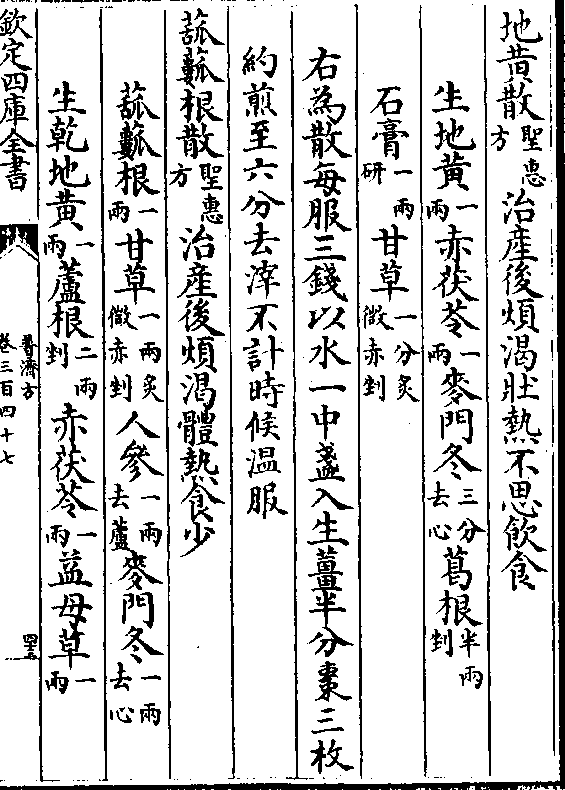 地黄散聖惠方 治産後煩渴壯熱不思飲食
生地黄一兩 赤茯苓一兩 麥門冬三分去心 葛根半兩剉
石膏一兩研 甘草一分炙微赤剉
右為散每服三錢以水一中盞入生薑半分棗三枚
約煎至六分去滓不計時候温服
菰𤬛根散聖惠方 治産後煩渴體熱食少
菰𤬛根一兩 甘草一兩炙微赤剉 人參一兩去蘆 麥門冬一兩去心
生乾地黄一兩 蘆根二兩剉 赤茯苓一兩 益母草一兩
欽定四庫全書 普濟方卷三百四十七